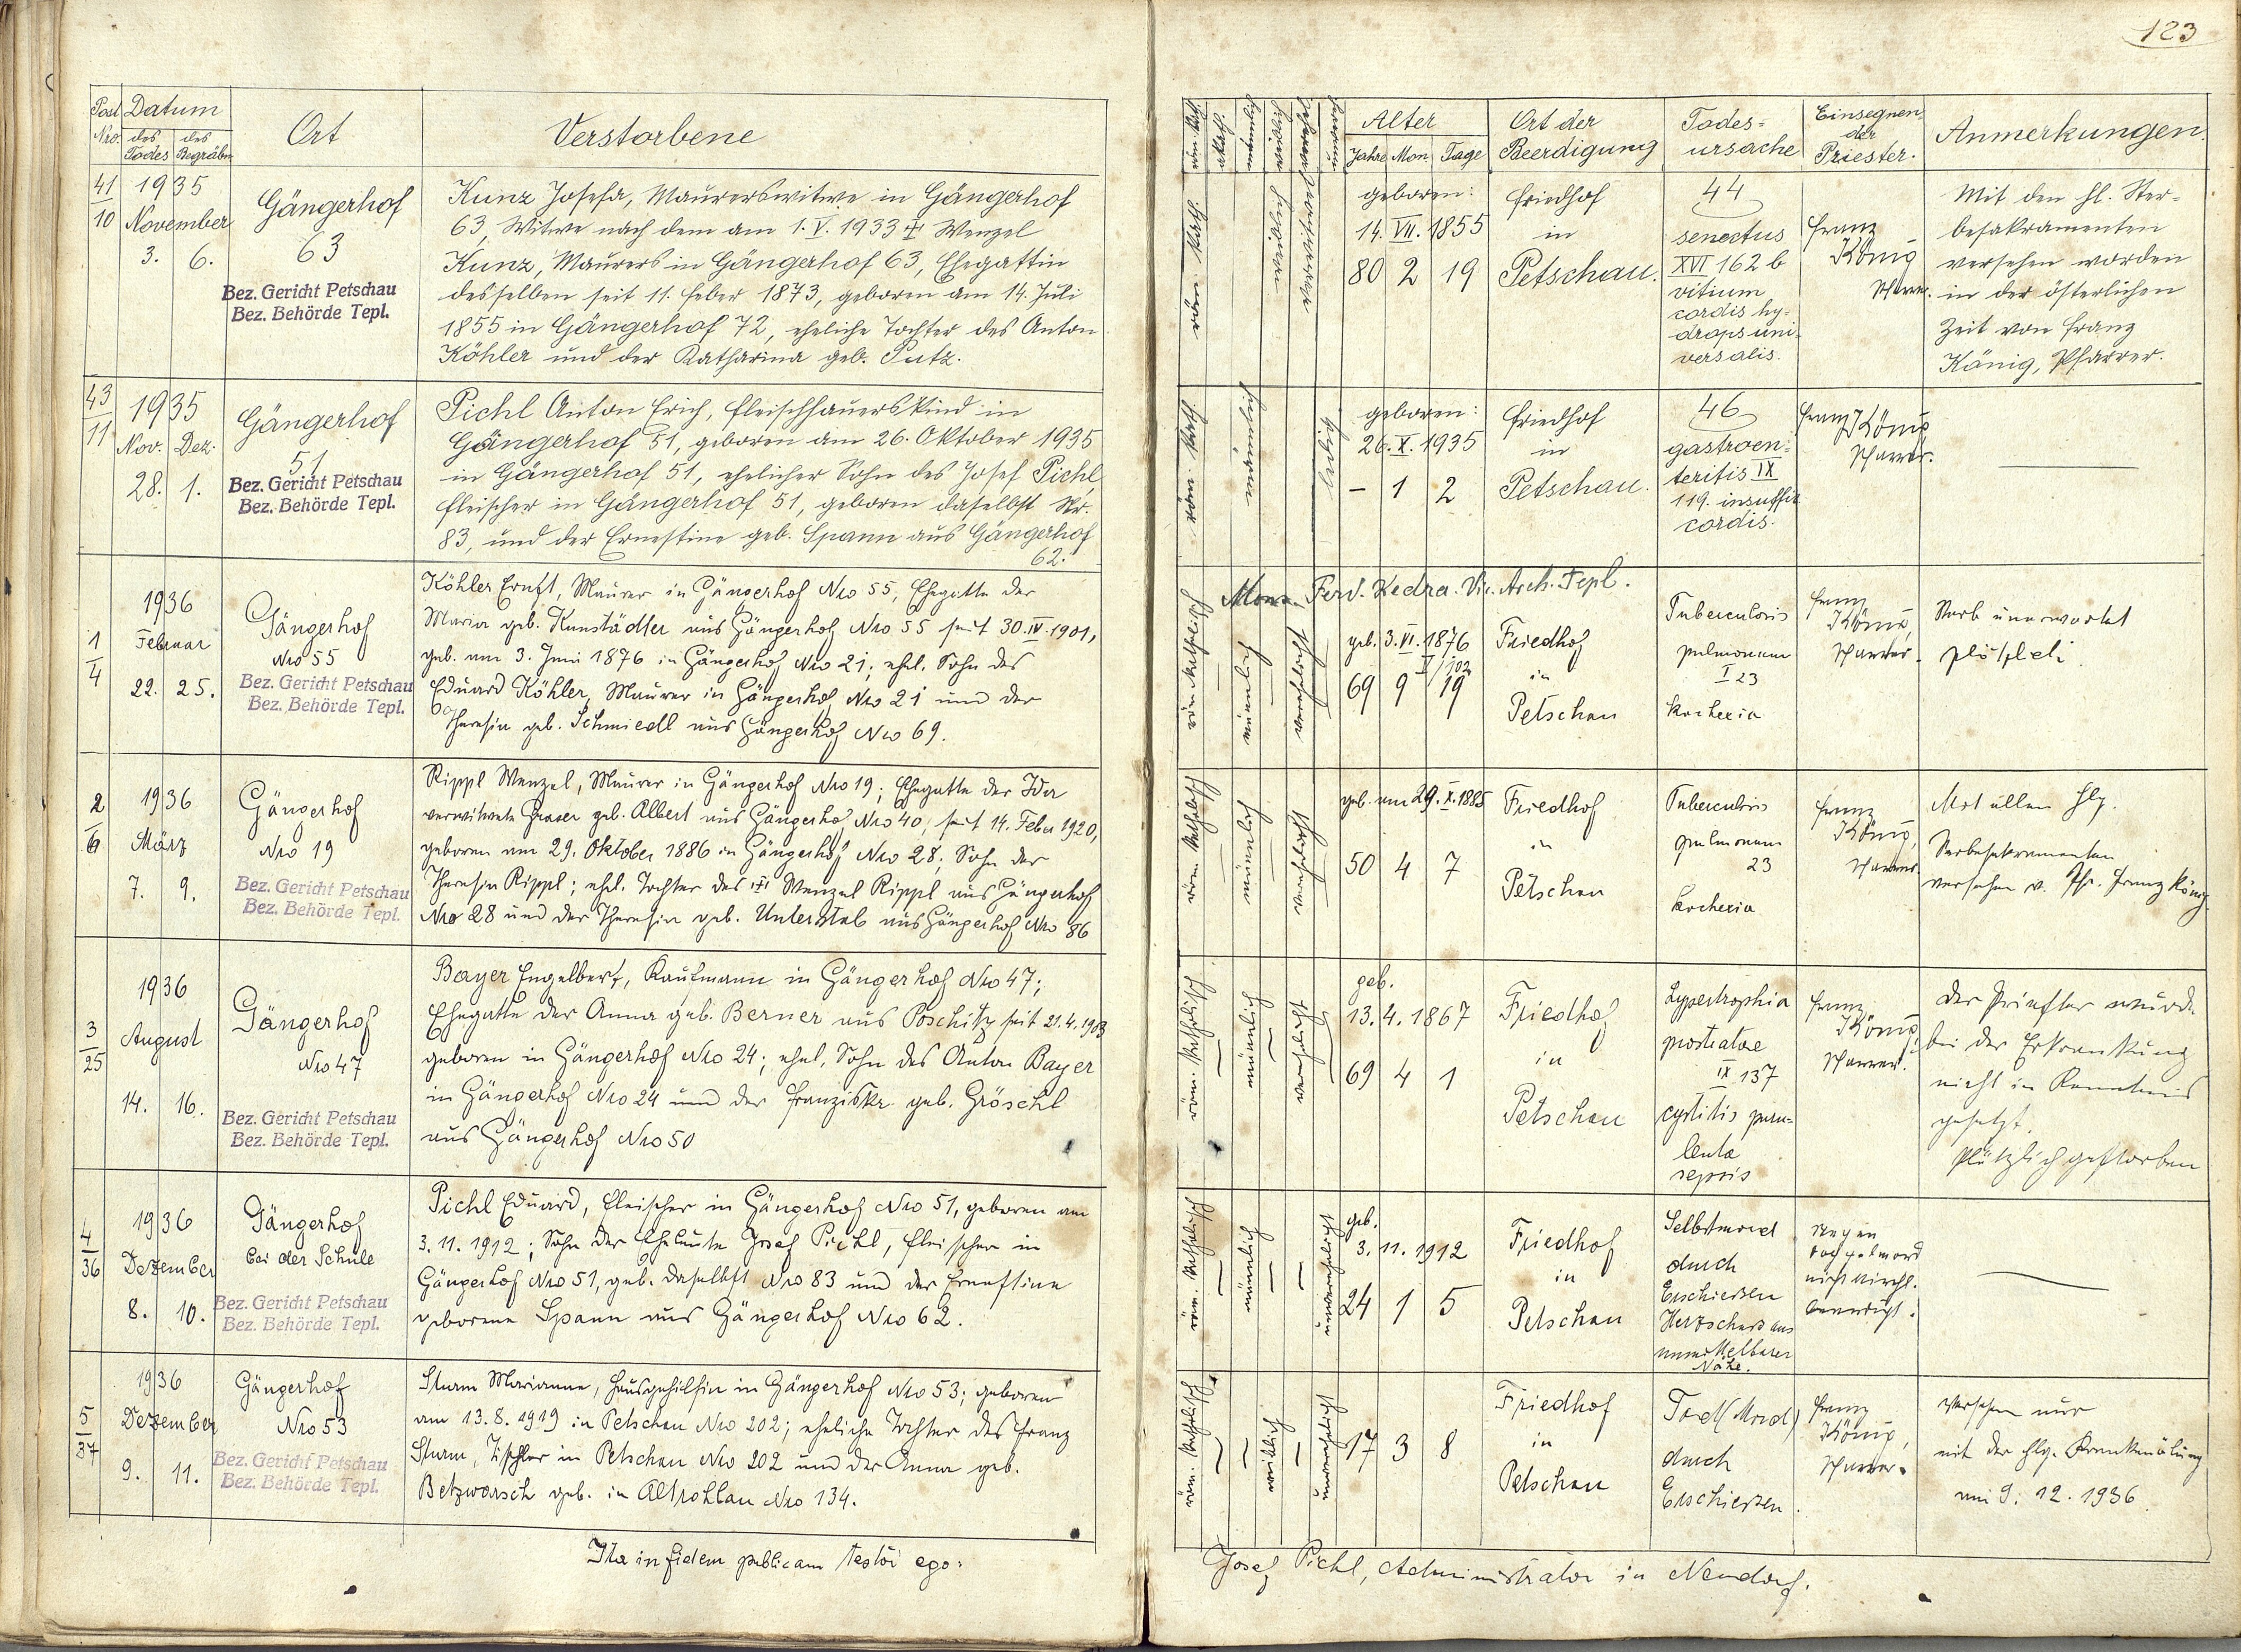 123
Post Nro. Datum Ort Verstorbene
des Todes des Begräbn.
41/10 1935 November 3. 6.
Gängerhof 63
Bez. Gericht Petschau
Bez. Behörde Tepl.
Kunz Josefa, Maurerswitwe in Gängerhof
63, Witwe nach dem am 1. V. 1933 † Wenzel
Kunz, Maurers in Gängerhof 63, Ehegattin
desselben seit 11. Feber 1873, geboren am 14. Juli
1855 in Gängerhof 72, eheliche Tochter des Anton
Köhler und der Katharina geb. Putz.
43/11 1935 Nov. Dez. 28. 1.
Gängerhof 51
Bez. Gericht Petschau
Bez. Behörde Tepl.
Pichl Anton Erich, Fleischhauerskind in
Gängerhof 51, geboren am 26. Oktober 1935
in Gängerhof 51, ehelicher Sohn des Josef Pichl,
Fleischer in Gängerhof 51, geboren daselbst Nr.
83, und der Ernestine geb. Spann aus Gängerhof
62.
1/4 1936 Februar 22. 25.
Gängerhof Nro 55
Bez. Gericht Petschau
Bez. Behörde Tepl.
Köhler Ernst, Maurer in Gängerhof Nro 55, Ehegatte der
Maria geb. Kunstädtler aus Gängerhof Nro 55 seit 30. IV. 1901,
geb. am 3. Juni 1876 in Gängerhof Nro 21; ehel. Sohn des
Eduard Köhler, Maurer in Gängerhof Nro 21 und der
Theresia geb. Schmiedl aus Gängerhof Nro 69.
2/6 1936 März 7. 9.
Gängerhof Nro 19
Bez. Gericht Petschau
Bez. Behörde Tepl.
Rippl Wenzel, Maurer in Gängerhof Nro 19; Ehegatte der Ida
verwitwete Graser geb. Albert aus Gängerhof Nro 40, seit 14. Feber 1920,
geboren am 29. Oktober 1886 in Gängerhof Nro 28; Sohn der
Theresia Rippl; ehel. Tochter des Wenzel Rippl aus Gängerhof
Nro 28 und der Theresia geb. Unterstab aus Gängerhof Nro 86
3/25 1936 August 14. 16.
Gängerhof Nro 47
Bez. Gericht Petschau
Bez. Behörde Tepl.
Bayer Engelbert, Kaufmann in Gängerhof Nro 47;
Ehegatte der Anna geb. Berner aus Poschitz seit 21.4.1903
geboren in Gängerhof Nro 24; ehel. Sohn des Anton Bayer
in Gängerhof Nro 24 und der Franziska geb. Gröschl
aus Gängerhof Nro 50
4/36 1936 Dezember 8. 10.
Gängerhof bei der Schule
Bez. Gericht Petschau
Bez. Behörde Tepl.
Pichl Eduard, Fleischer in Gängerhof Nro 51, geboren am
3.11.1912; Sohn der Eheleute Josef Pichl, Fleischer in
Gängerhof Nro 51, geb. daselbst Nro 83 und der Ernestine
geborene Spann aus Gängerhof Nro 62.
5/37 1936 Dezember 9. 11.
Gängerhof Nro 53
Bez. Gericht Petschau
Bez. Behörde Tepl.
Sturm Marianne, Hausgehilfin in Gängerhof Nro 53; geboren
am 13.8.1919 in Petschau Nro 202; eheliche Tochter des Franz
Sturm, Tischler in Petschau Nro 202 und der Anna geb.
Betzworsch geb. in Altrohlau Nro 134.
Ita in fidem publicam testor ego:
Alter Ort der Beerdigung Todesursache Einsegnender Priester. Anmerkungen.
Jahre Mon. Tage
röm. kath.
geboren:
14. VII. 1855
80 2 19
Friedhof
in
Petschau.
44
senectus
XVI 162 b
vitium
cordis hy-
drops uni-
versalis.
Franz
König
Pfarrer.
Mit den hl. Ster-
besakramenten
versehen worden
in der österlichen
Zeit von Franz
König, Pfarrer.
röm. kath. männlich ledig
geboren:
26. X. 1935
– 1 2
Friedhof
in
Petschau.
46
gastroen-
teritis IX
119. insuffic.
cordis.
Franz König
Pfarrer.
Ferd. Kedra. Vic. Arch. Tepl.
röm. katholisch männlich verehelicht
geb. 3. VI. 1876
69 9 19
Friedhof
in
Petschau
Tuberculosis
pulmonum
I 23
kachexia
Franz
König,
Pfarrer.
Starb unerwartet
plötzlich.
röm. katholisch männlich verehelicht
geb. am 29. X. 1885
50 4 7
Friedhof
in
Petschau
Tuberculosis
pulmonum
23
kachexia
Franz
König,
Pfarrer.
Mit allen hlg.
Sterbesakramenten
versehen v. Pfr. Franz König.
röm. katholisch männlich verehelicht
geb.
13. 4. 1867
69 4 1
Friedhof
in
Petschau
hypertrophia
prostatae
IX 137
cystitis puru-
lenta
sepsis
Franz
König,
Pfarrer.
Der Priester wurde
bei der Erkrankung
nicht in Kenntnis
gesetzt.
Plötzlich gestorben
röm. katholisch männlich unverehelicht
geb.
3. 11. 1912
24 1 5
Friedhof
in
Petschau
Selbstmord
durch
Erschiessen
Herzschuss aus
unmittelbarer
Nähe.
Wegen
nicht kirchl.
beerdigt.
röm. katholisch weiblich unverehelicht
17 3 8
Friedhof
in
Petschau
Tod (Mord)
durch
Erschiessen.
Franz
König,
Pfarrer.
Versehen nur
mit der hlg. Krankenölung
am 9. 12. 1936.
Josef Pichl, Administrator in Neudorf.